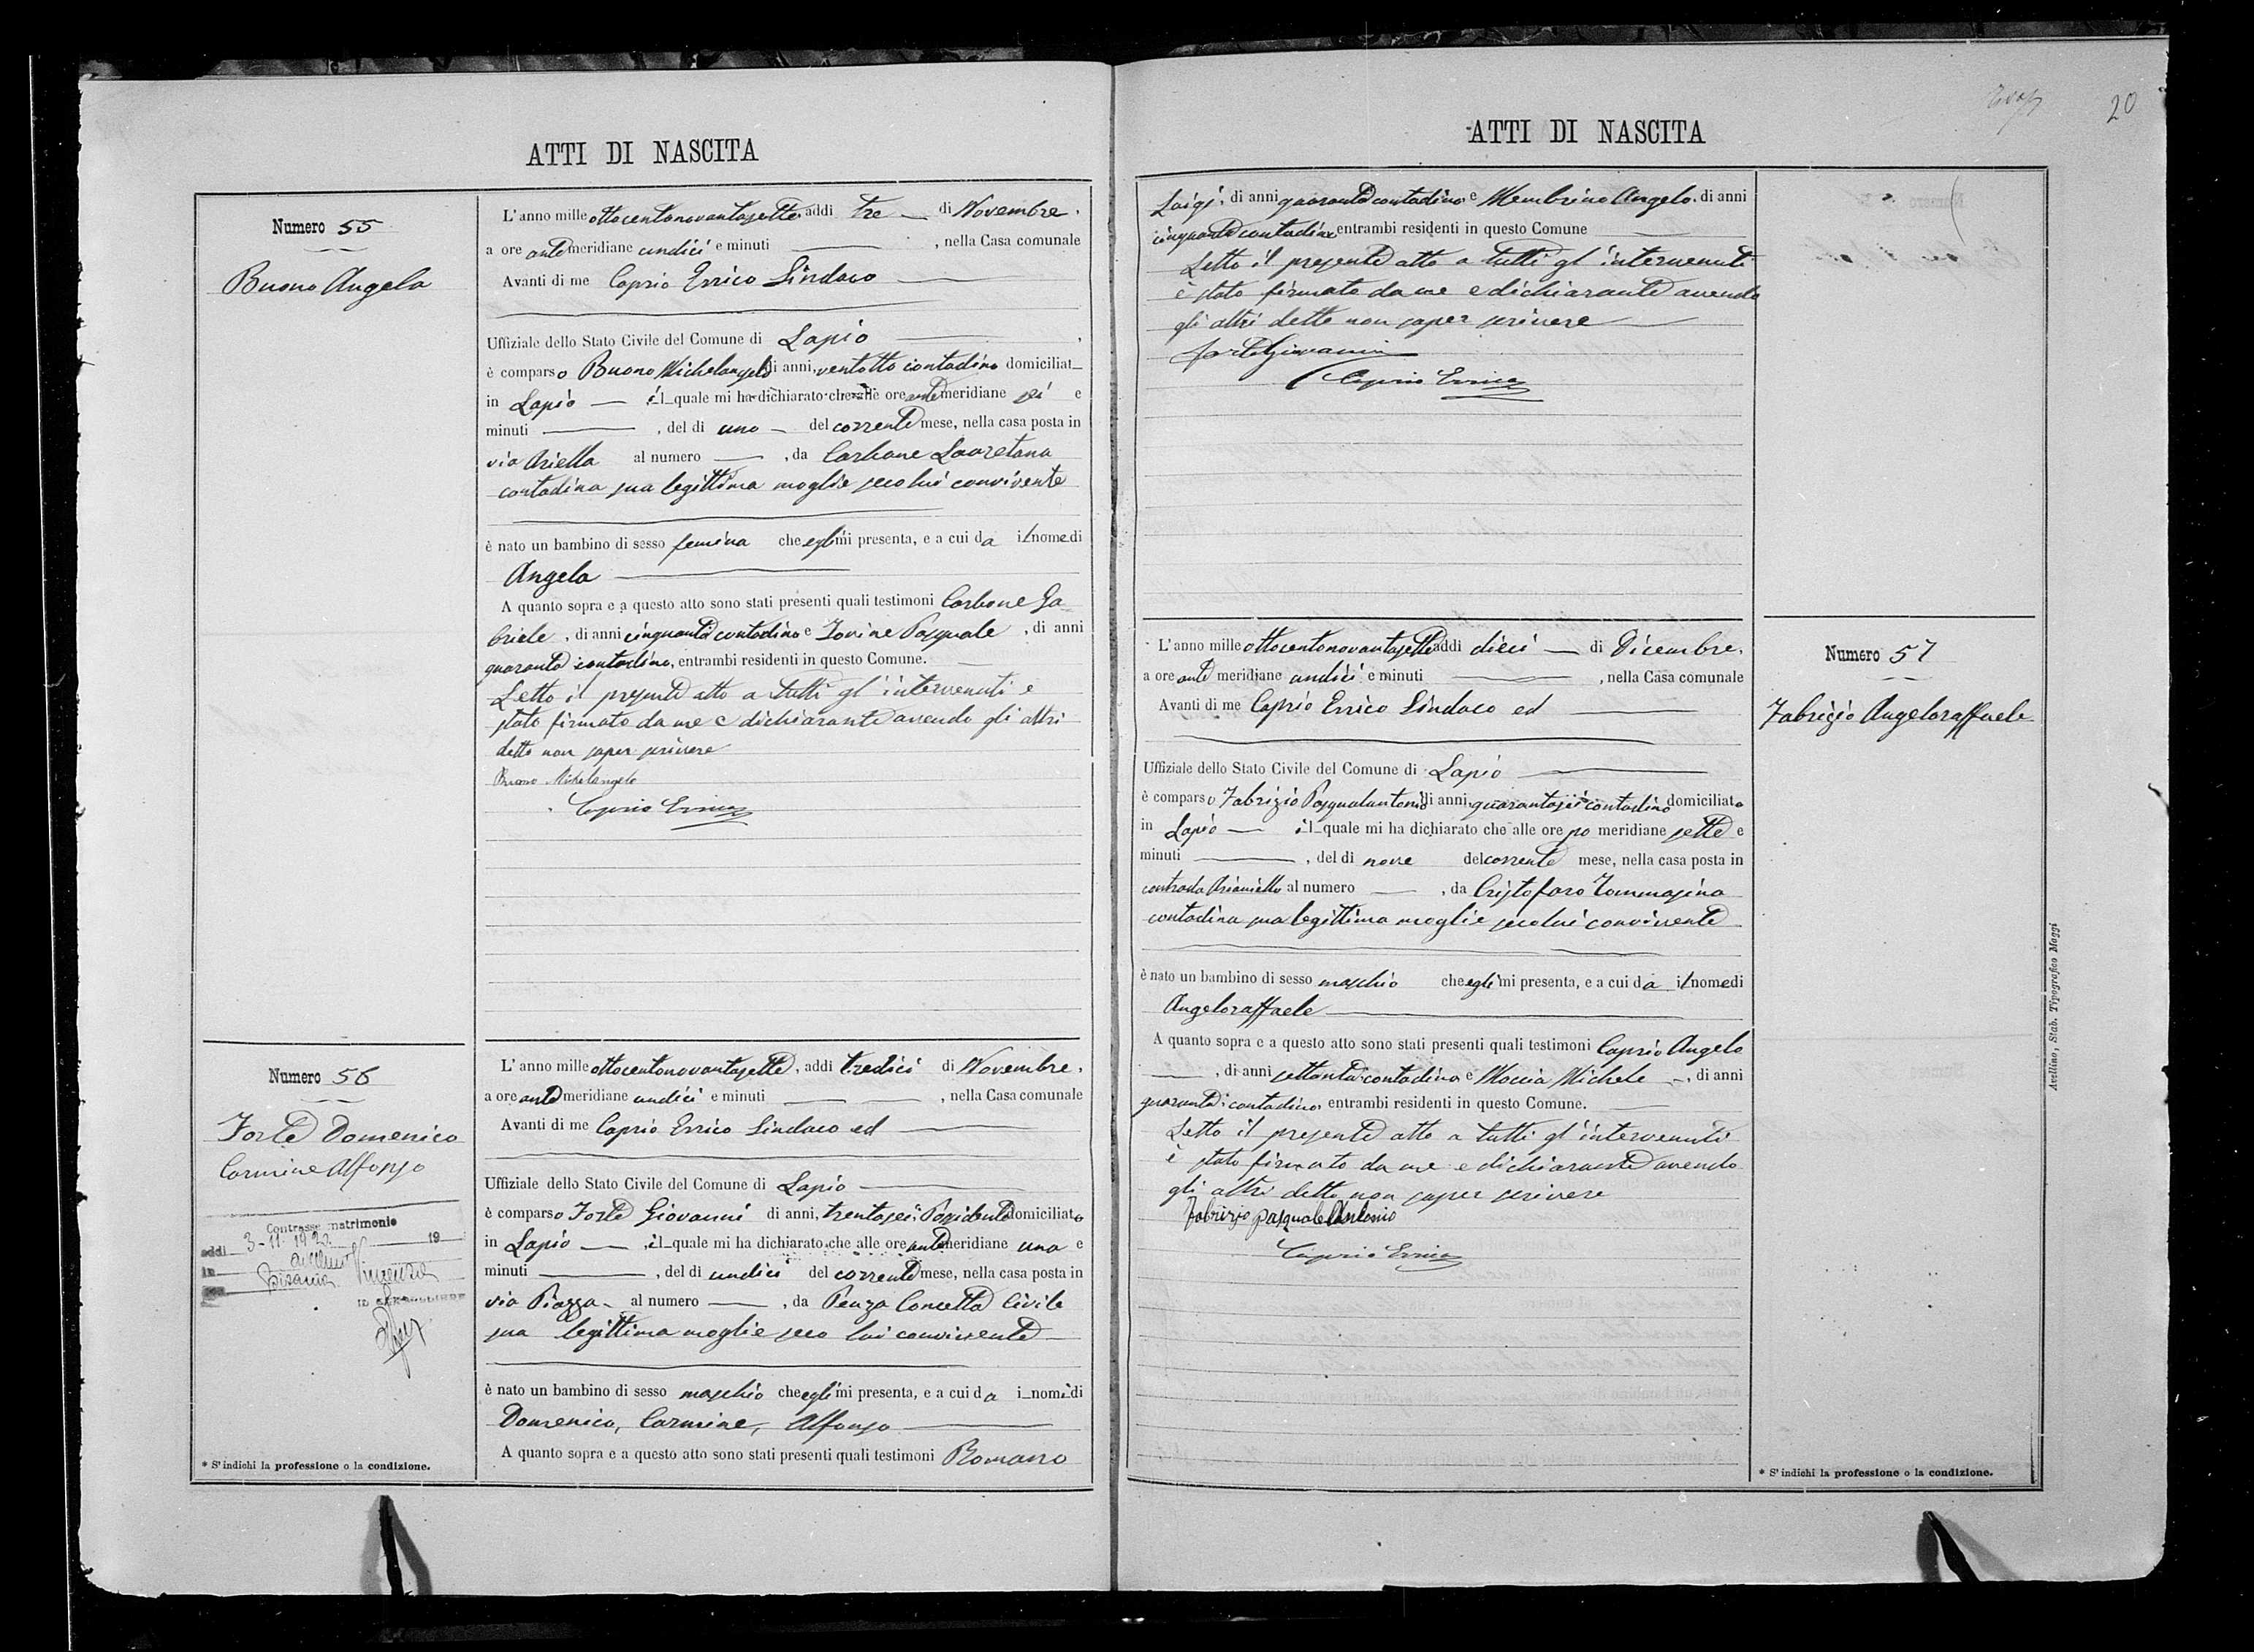 ATTI DI NASCITA
Numero 55
Buono Angela
L'anno mille ottocentonovantasette, addi tre di Novembre,
a ore antemeridiane undici e minuti , nella Casa comunale
Avanti di me Caprio Errico Sindaco
Uffiziale dello Stato Civile del Comune di Lapio ,
è comparso Buono Michelangelo di anni, ventotto contadino domiciliat
in Lapio il quale mi ha dichiarato che alle ore antemeridiane sei e
minuti , del di uno del corrente mese, nella casa posta in
via Ariella al numero , da Carbone Lauretana
contadina sua legittima moglie seco lui convivente
è nato un bambino di sesso femina che egli mi presenta, e a cui da il nome di
Angela
A quanto sopra e a questo atto sono stati presenti quali testimoni Carbone Ga
briele, di anni cinquanta contadino e Iovine Pasquale, di anni
quaranta contadino, entrambi residenti in questo Comune.
Letto il presente atto a tutti gl'intervenuti e
stato firmato da me e dichiarante avendo gli altri
detto non saper scrivere
Buono Michelangelo
Caprio Errico
Numero 56
Forte Domenico
Carmine Alfonso
Contrasse matrimonio
addi 3-11-1922 19
in
Pisania Vincenza
L'anno mille ottocentonovantasette, addi tredici di Novembre,
a ore antemeridiane undici e minuti , nella Casa comunale
Avanti di me Caprio Errico Sindaco ed
Uffiziale dello Stato Civile del Comune di Lapio
è comparso Forte Giovanni di anni, trentasei, Possidente domiciliato
in Lapio , il quale mi ha dichiarato che alle ore antemeridiane una e
minuti , del di undici del corrente mese, nella casa posta in
via Piazza al numero , da Penza Concetta Civile
sua legittima moglie seco lui convivente
è nato un bambino di sesso maschio che egli mi presenta, e a cui da i nomi di
Domenico, Carmine, Alfonso
A quanto sopra e a questo atto sono stati presenti quali testimoni Romano
* S'indichi la professione o la condizione.
20
ATTI DI NASCITA
Luigi, di anni quaranta contadino e Membrino Angelo, di anni
cinquanta contadino entrambi residenti in questo Comune
Letto il presente atto a tutti gl'intervenuti
è stato firmato da me e dichiarante avendo
gli altri detto non saper scrivere
Forte Giovanni
Caprio Errico
Numero 57
Fabrizio Angeloraffaele
L'anno mille ottocentonovantasette addi dieci di Dicembre,
a ore ante meridiane undici e minuti , nella Casa comunale
Avanti di me Caprio Errico Sindaco ed
Uffiziale dello Stato Civile del Comune di Lapio
è comparso Fabrizio Pasqualantonio di anni, quarantasei contadino domiciliato
in Lapio il quale mi ha dichiarato che alle ore po meridiane sette e
minuti , del di nove del corrente mese, nella casa posta in
contrada Arianiello al numero , da Cristofaro Tommasina
contadina sua legittima moglie seco lui convivente
è nato un bambino di sesso maschio che egli mi presenta, e a cui da il nome di
Angeloraffaele
A quanto sopra e a questo atto sono stati presenti quali testimoni Caprio Angelo
, di anni settanta contadino e Moccia Michele , di anni
quaranta contadino, entrambi residenti in questo Comune.
Letto il presente atto a tutti gl'intervenuti
è stato firmato da me e dichiarante avendo
gli altri detto non saper scrivere
Fabrizio Pasquale Antonio
Caprio Errico
* S'indichi la professione o la condizione.
Avellino, Stab. Tipografico Maggi